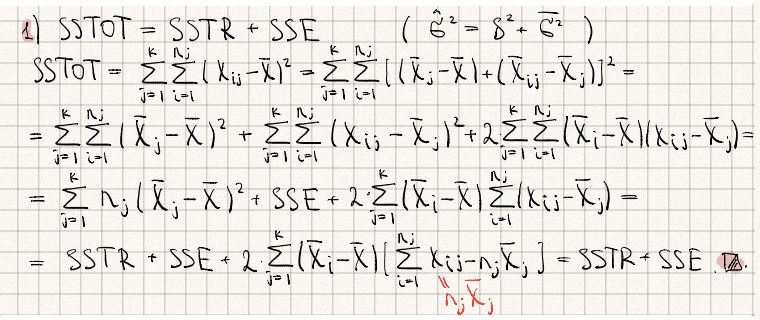 1) SSTOT = SSTR + SSE ( σ̂² = δ² + σ̅² )
SSTOT = ∑_{j=1}^{k} ∑_{i=1}^{n_j} (x_{ij} - X̄)² = ∑_{j=1}^{k} ∑_{i=1}^{n_j} [(X̄_j - X̄) + (X̄_{ij} - X̄_j)]² =
= ∑_{j=1}^{k} ∑_{i=1}^{n_j} (X̄_j - X̄)² + ∑_{j=1}^{k} ∑_{i=1}^{n_j} (x_{ij} - X̄_j)² + 2·∑_{j=1}^{k} ∑_{i=1}^{n_j} (X̄_i - X̄)(x_{ij} - X̄_j) =
= ∑_{j=1}^{k} n_j (X̄_j - X̄)² + SSE + 2·∑_{j=1}^{k} (X̄_i - X̄) ∑_{i=1}^{n_j} (x_{ij} - X̄_j) =
= SSTR + SSE + 2·∑_{j=1}^{k} (X̄_i - X̄) [ ∑_{i=1}^{n_j} x_{ij} - n_j X̄_j ] = SSTR + SSE.
" n_j X̄_j